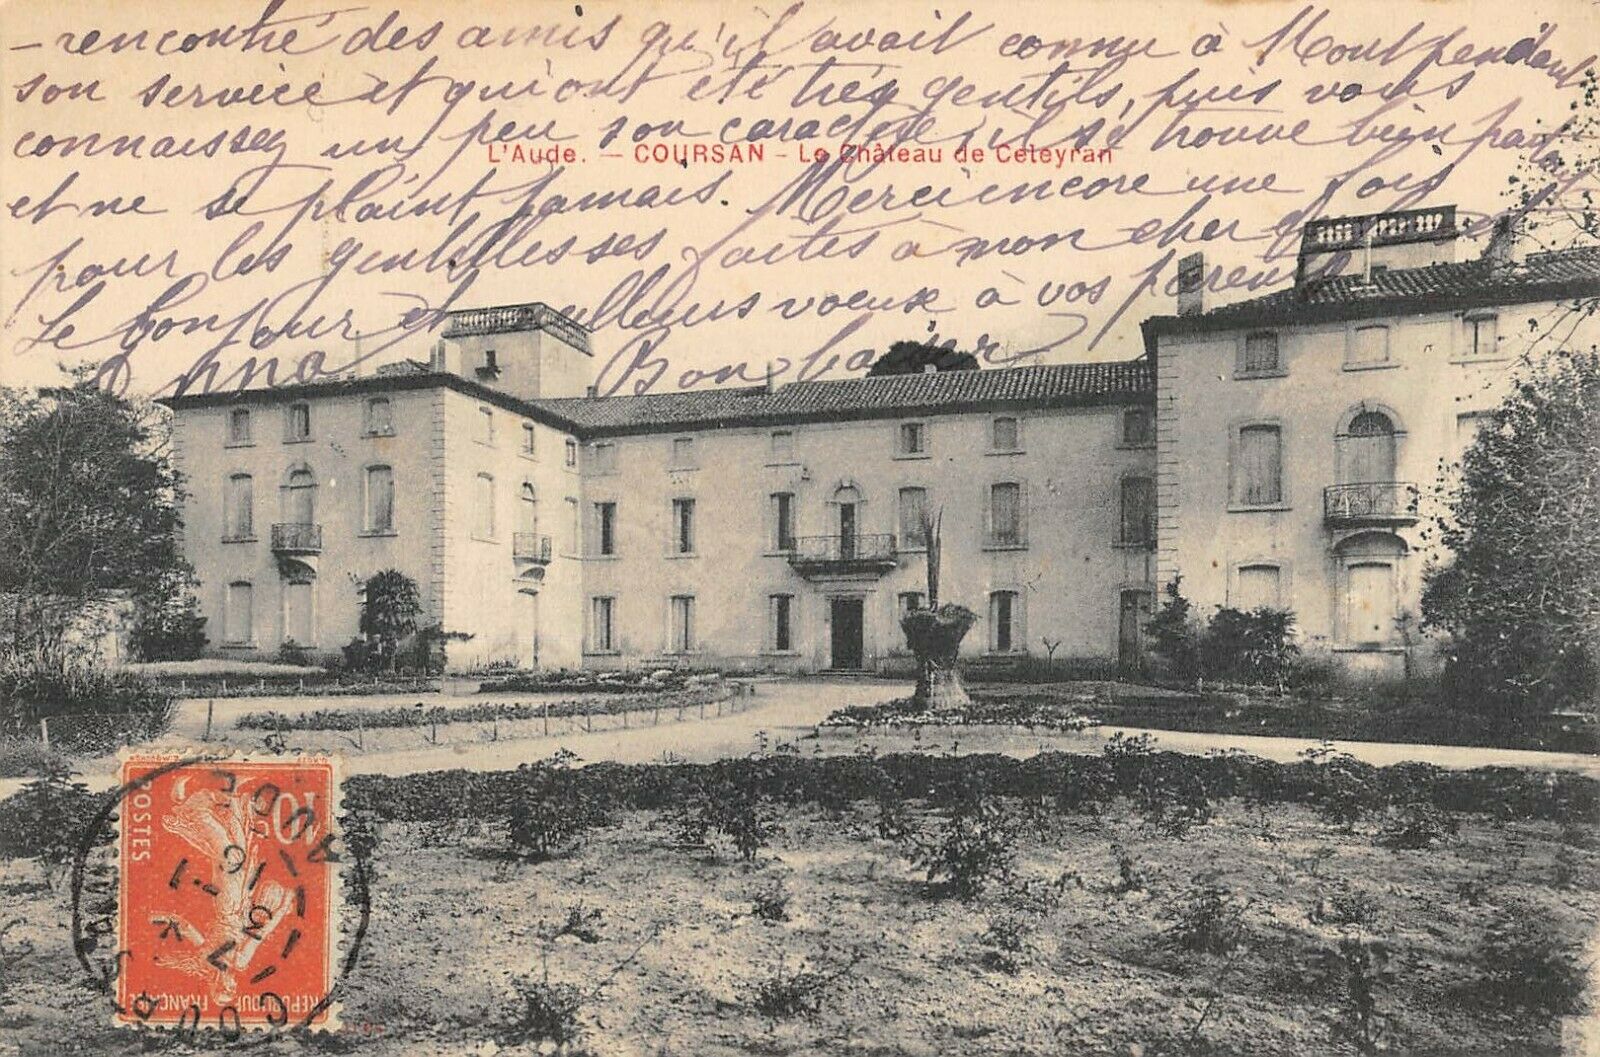 -rencontré des amis qu'il avait connu à Mont pendant
son service et qui ont été très gentils, puis vous
connaissez un peu son caractère, il se trouve bien par
L'Aude. — COURSAN - Le Château de Celeyran
et ne se plaint jamais. Merci encore une fois
pour les gentillesses faites à mon cher
le bonjour et meilleurs voeux à vos parents
Bon baiser
10c
POSTES
REPUBLIQUE FRANÇAISE
COURSAN
AUDE